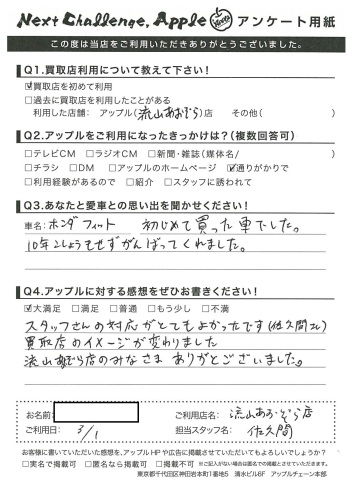 Next Challenge, Apple Hearts アンケート用紙
この度は当店をご利用いただきありがとうございました。
Q1.買取店利用について教えて下さい！
☑買取店を初めて利用
□過去に買取店を利用したことがある
利用した店舗： アップル（流山あおぞら）店 その他（ ）
Q2.アップルをご利用になったきっかけは？（複数回答可）
□テレビCM □ラジオCM □新聞・雑誌（媒体名/ ）
□チラシ □DM □アップルのホームページ ☑通りがかりで
□利用経験があるので □紹介 □スタッフに誘われて
Q3.あなたと愛車との思い出を聞かせください！
車名：ホンダ フィット 初じめて買った車でした。
10年こしょうもせずがんばってくれました。
Q4.アップルに対する感想をぜひお書きください！
☑大満足 □満足 □普通 □もう少し □不満
スタッフさんの対応がとてもよかったです(佐久間さん)
買取店のイメージが変わりました
流山あおぞら店のみなさま ありがとございました。
お名前:
ご利用店名: 流山あおぞら店
ご利用日: 3/1
担当スタッフ名: 佐久間
お客様に書いていただいた感想を、アップルHPや広告に掲載させていただいてもよろしいでしょうか？
□実名で掲載可 □匿名なら掲載可 □掲載不可 ※ご記入がない場合は匿名での掲載とさせていただきます。
東京都千代田区神田岩本町1番地5 清水ビル6F アップルチェーン本部